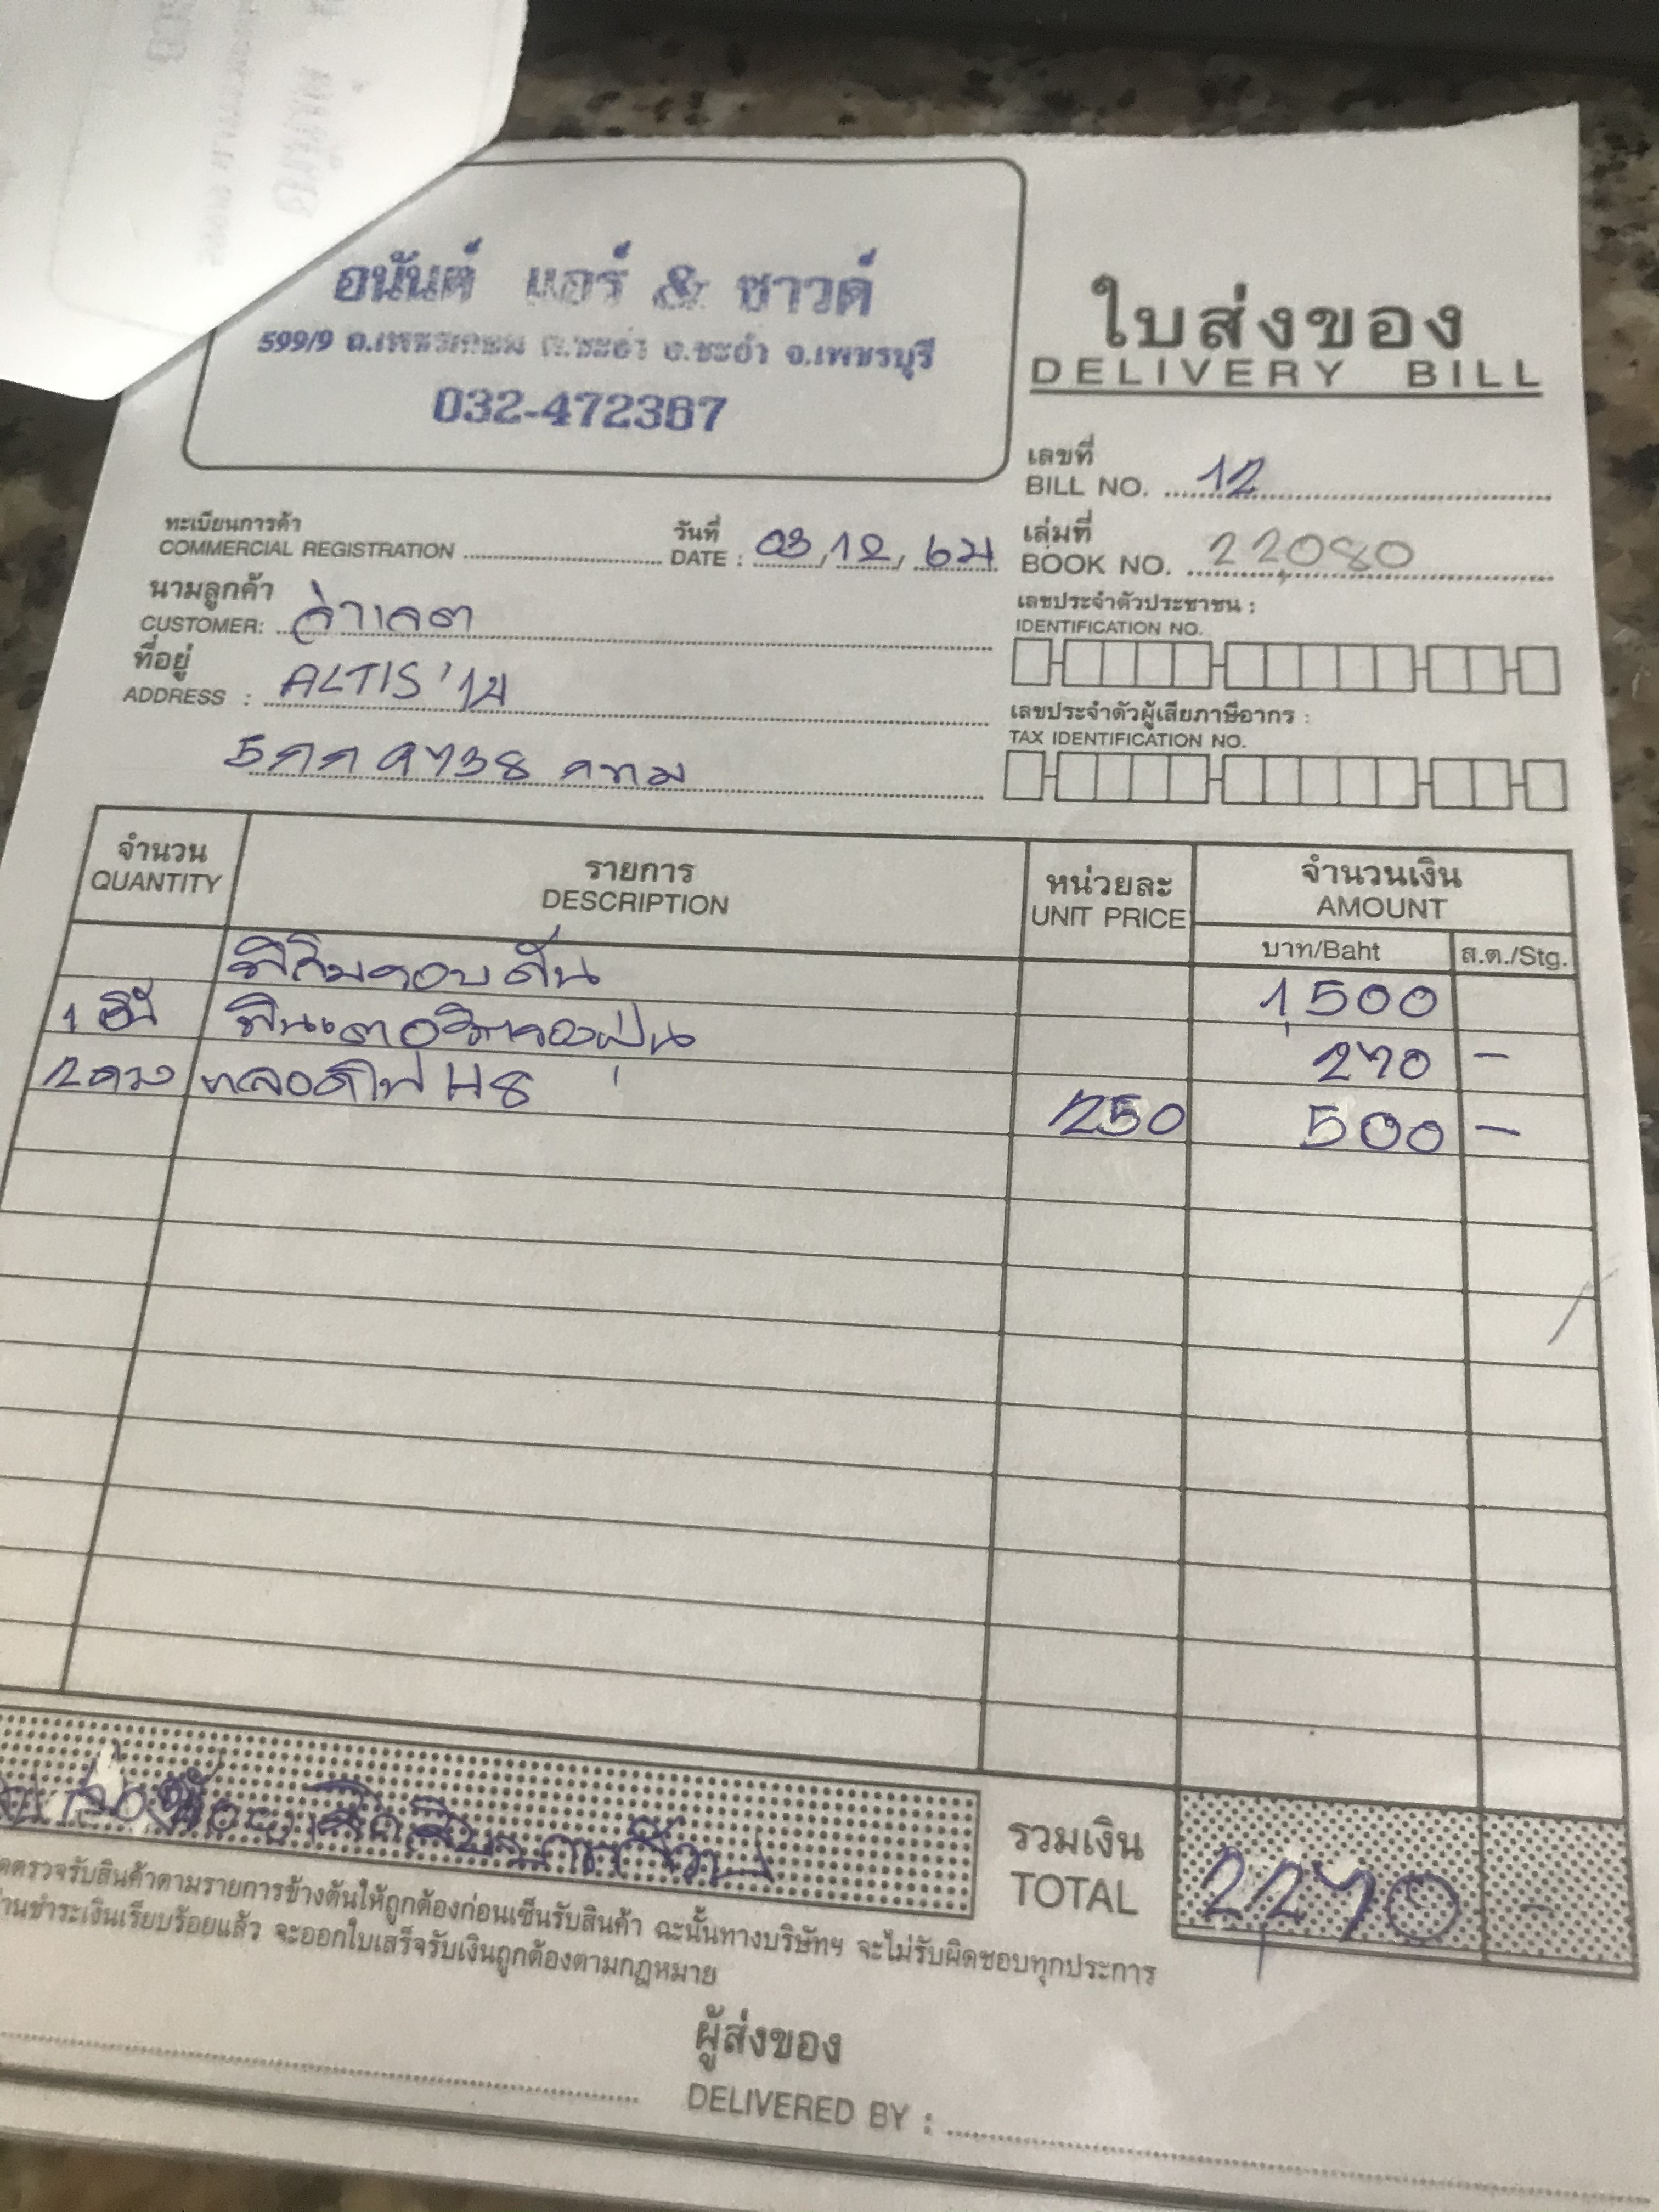 อนันต์ แอร์ & ซาวด์
599/9 ถ.เพชรเกษม ต.ชะอำ อ.ชะอำ จ.เพชรบุรี
032-472367
ใบส่งของ
DELIVERY BILL
เลขที่
BILL NO. 12
ทะเบียนการค้า
COMMERCIAL REGISTRATION
วันที่
DATE : 03/12/64
เล่มที่
BOOK NO. 22080
นามลูกค้า
CUSTOMER:
เลขประจำตัวประชาชน :
IDENTIFICATION NO.
ที่อยู่
ADDRESS : ALTIS '14
เลขประจำตัวผู้เสียภาษีอากร :
TAX IDENTIFICATION NO.
5กก 9738 กทม
จำนวน รายการ หน่วยละ จำนวนเงิน
QUANTITY DESCRIPTION UNIT PRICE AMOUNT
บาท/Baht ส.ต./Stg.
ฟิล์มรอบคัน 1,500
1 ฟิลเตอร์กรองฝุ่น 270 -
2 ดวง หลอดไฟ H8 250 500 -
รวมเงิน
TOTAL 2,270 -
ตรวจรับสินค้าตามรายการข้างต้นให้ถูกต้องก่อนเซ็นรับสินค้า ฉะนั้นทางบริษัทฯ จะไม่รับผิดชอบทุกประการ
ชำระเงินเรียบร้อยแล้ว จะออกใบเสร็จรับเงินถูกต้องตามกฎหมาย
ผู้ส่งของ
DELIVERED BY :